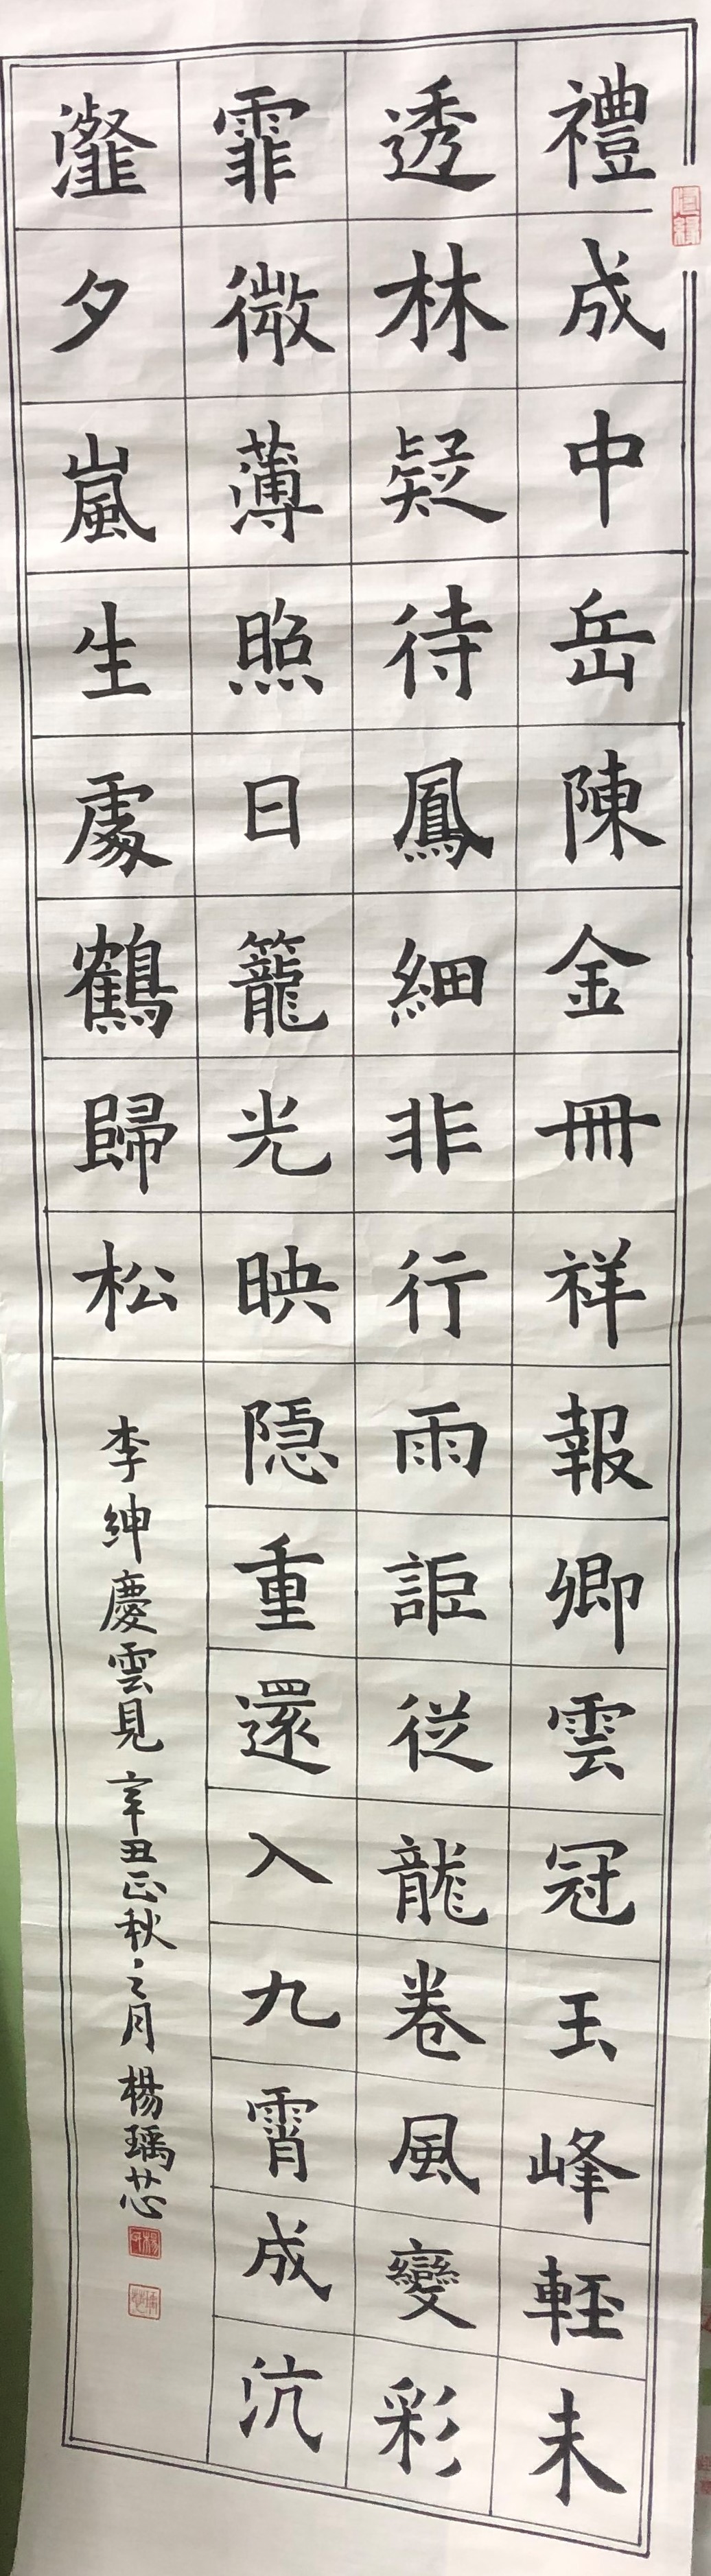 禮成中岳陳金冊祥報卿雲冠玉峰輕未
透林疑待鳳細非行雨詎從龍卷風變彩
霏微薄照日籠光映隱重還入九霄成沆
瀣夕嵐生處鶴歸松
李紳慶雲見 辛丑正秋之月 楊瑀芯